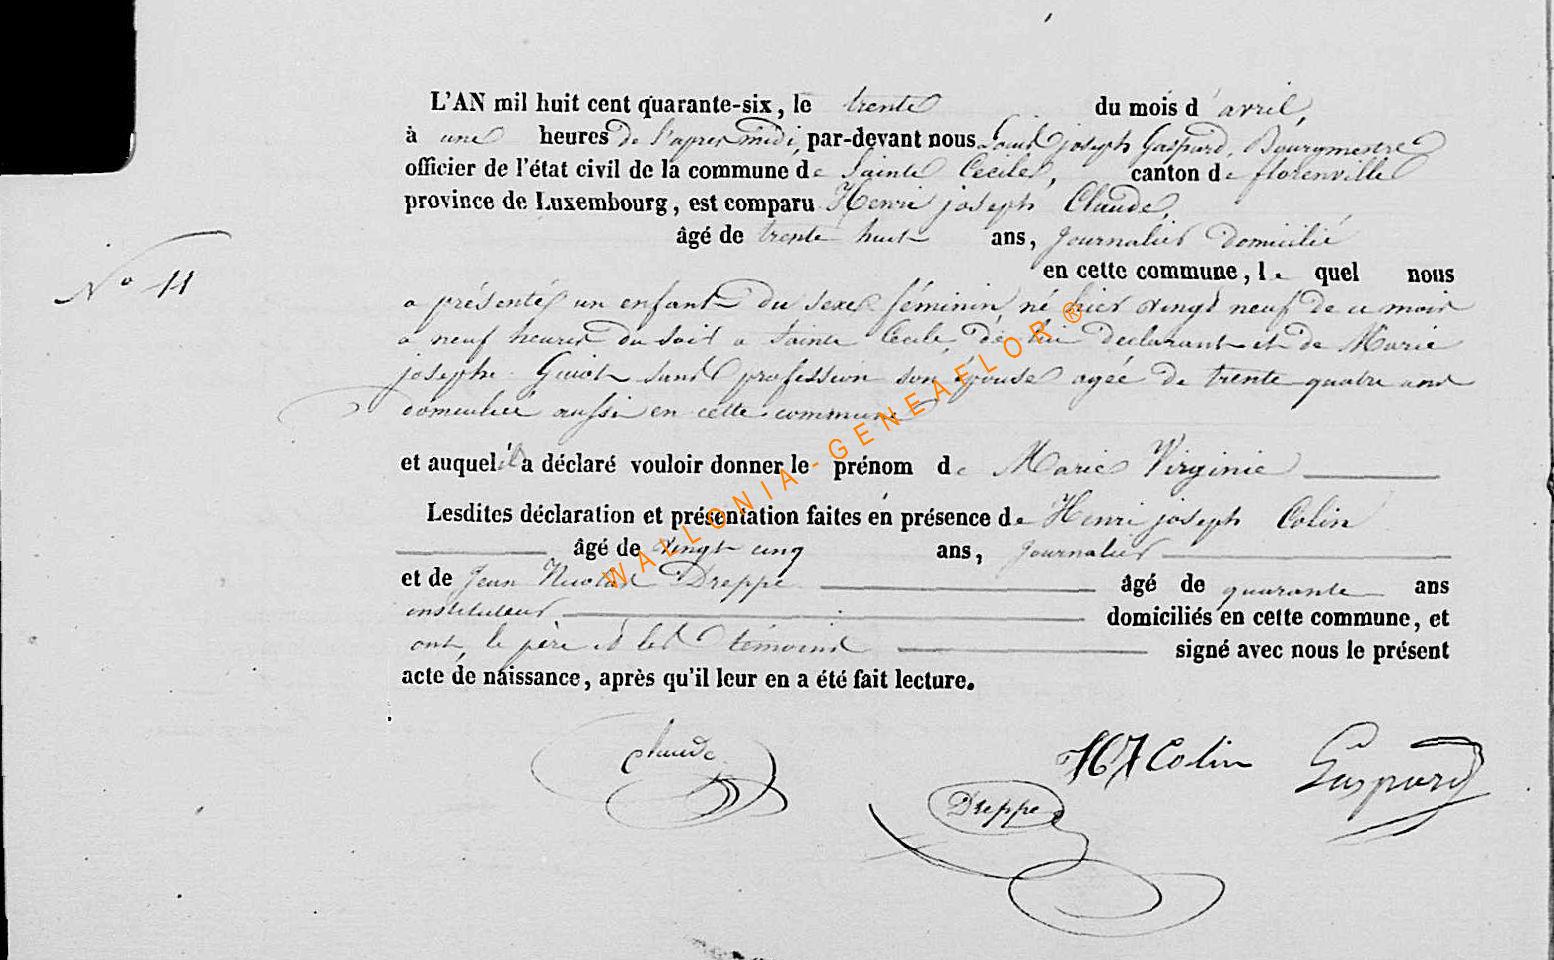 L'AN mil huit cent quarante-six, le trente du mois d'avril,
à une heures de l'apres midi, par-devant nous Louis joseph Gaspard, Bourgmestre
officier de l'état civil de la commune de Sainte Cecile, canton de florenville
province de Luxembourg, est comparu Henri joseph Claude,
âgé de trente huit ans, journalier domicilié
en cette commune, le quel nous
N° 11
a présenté un enfant du sexe féminin, né hier vingt neuf de ce mois
a neuf heures du soir a Sainte Cecile, de lui declarant et de Marie
josephe Guiot sans profession son épouse agée de trente quatre ans
domiciliée aussi en cette commune
et auquel il a déclaré vouloir donner le prénom de Marie Virginie
Lesdites déclaration et présentation faites en présence de Henri joseph Colin
âgé de vingt cinq ans, journalier
et de Jean Nicolas Dreppe âgé de quarante ans
instituteur domiciliés en cette commune, et
ont, le père et les témoins signé avec nous le présent
acte de naissance, après qu'il leur en a été fait lecture.
Claude
HJ Colin
Gaspard
Dreppe
WALLONIA-GENEAFLOR®